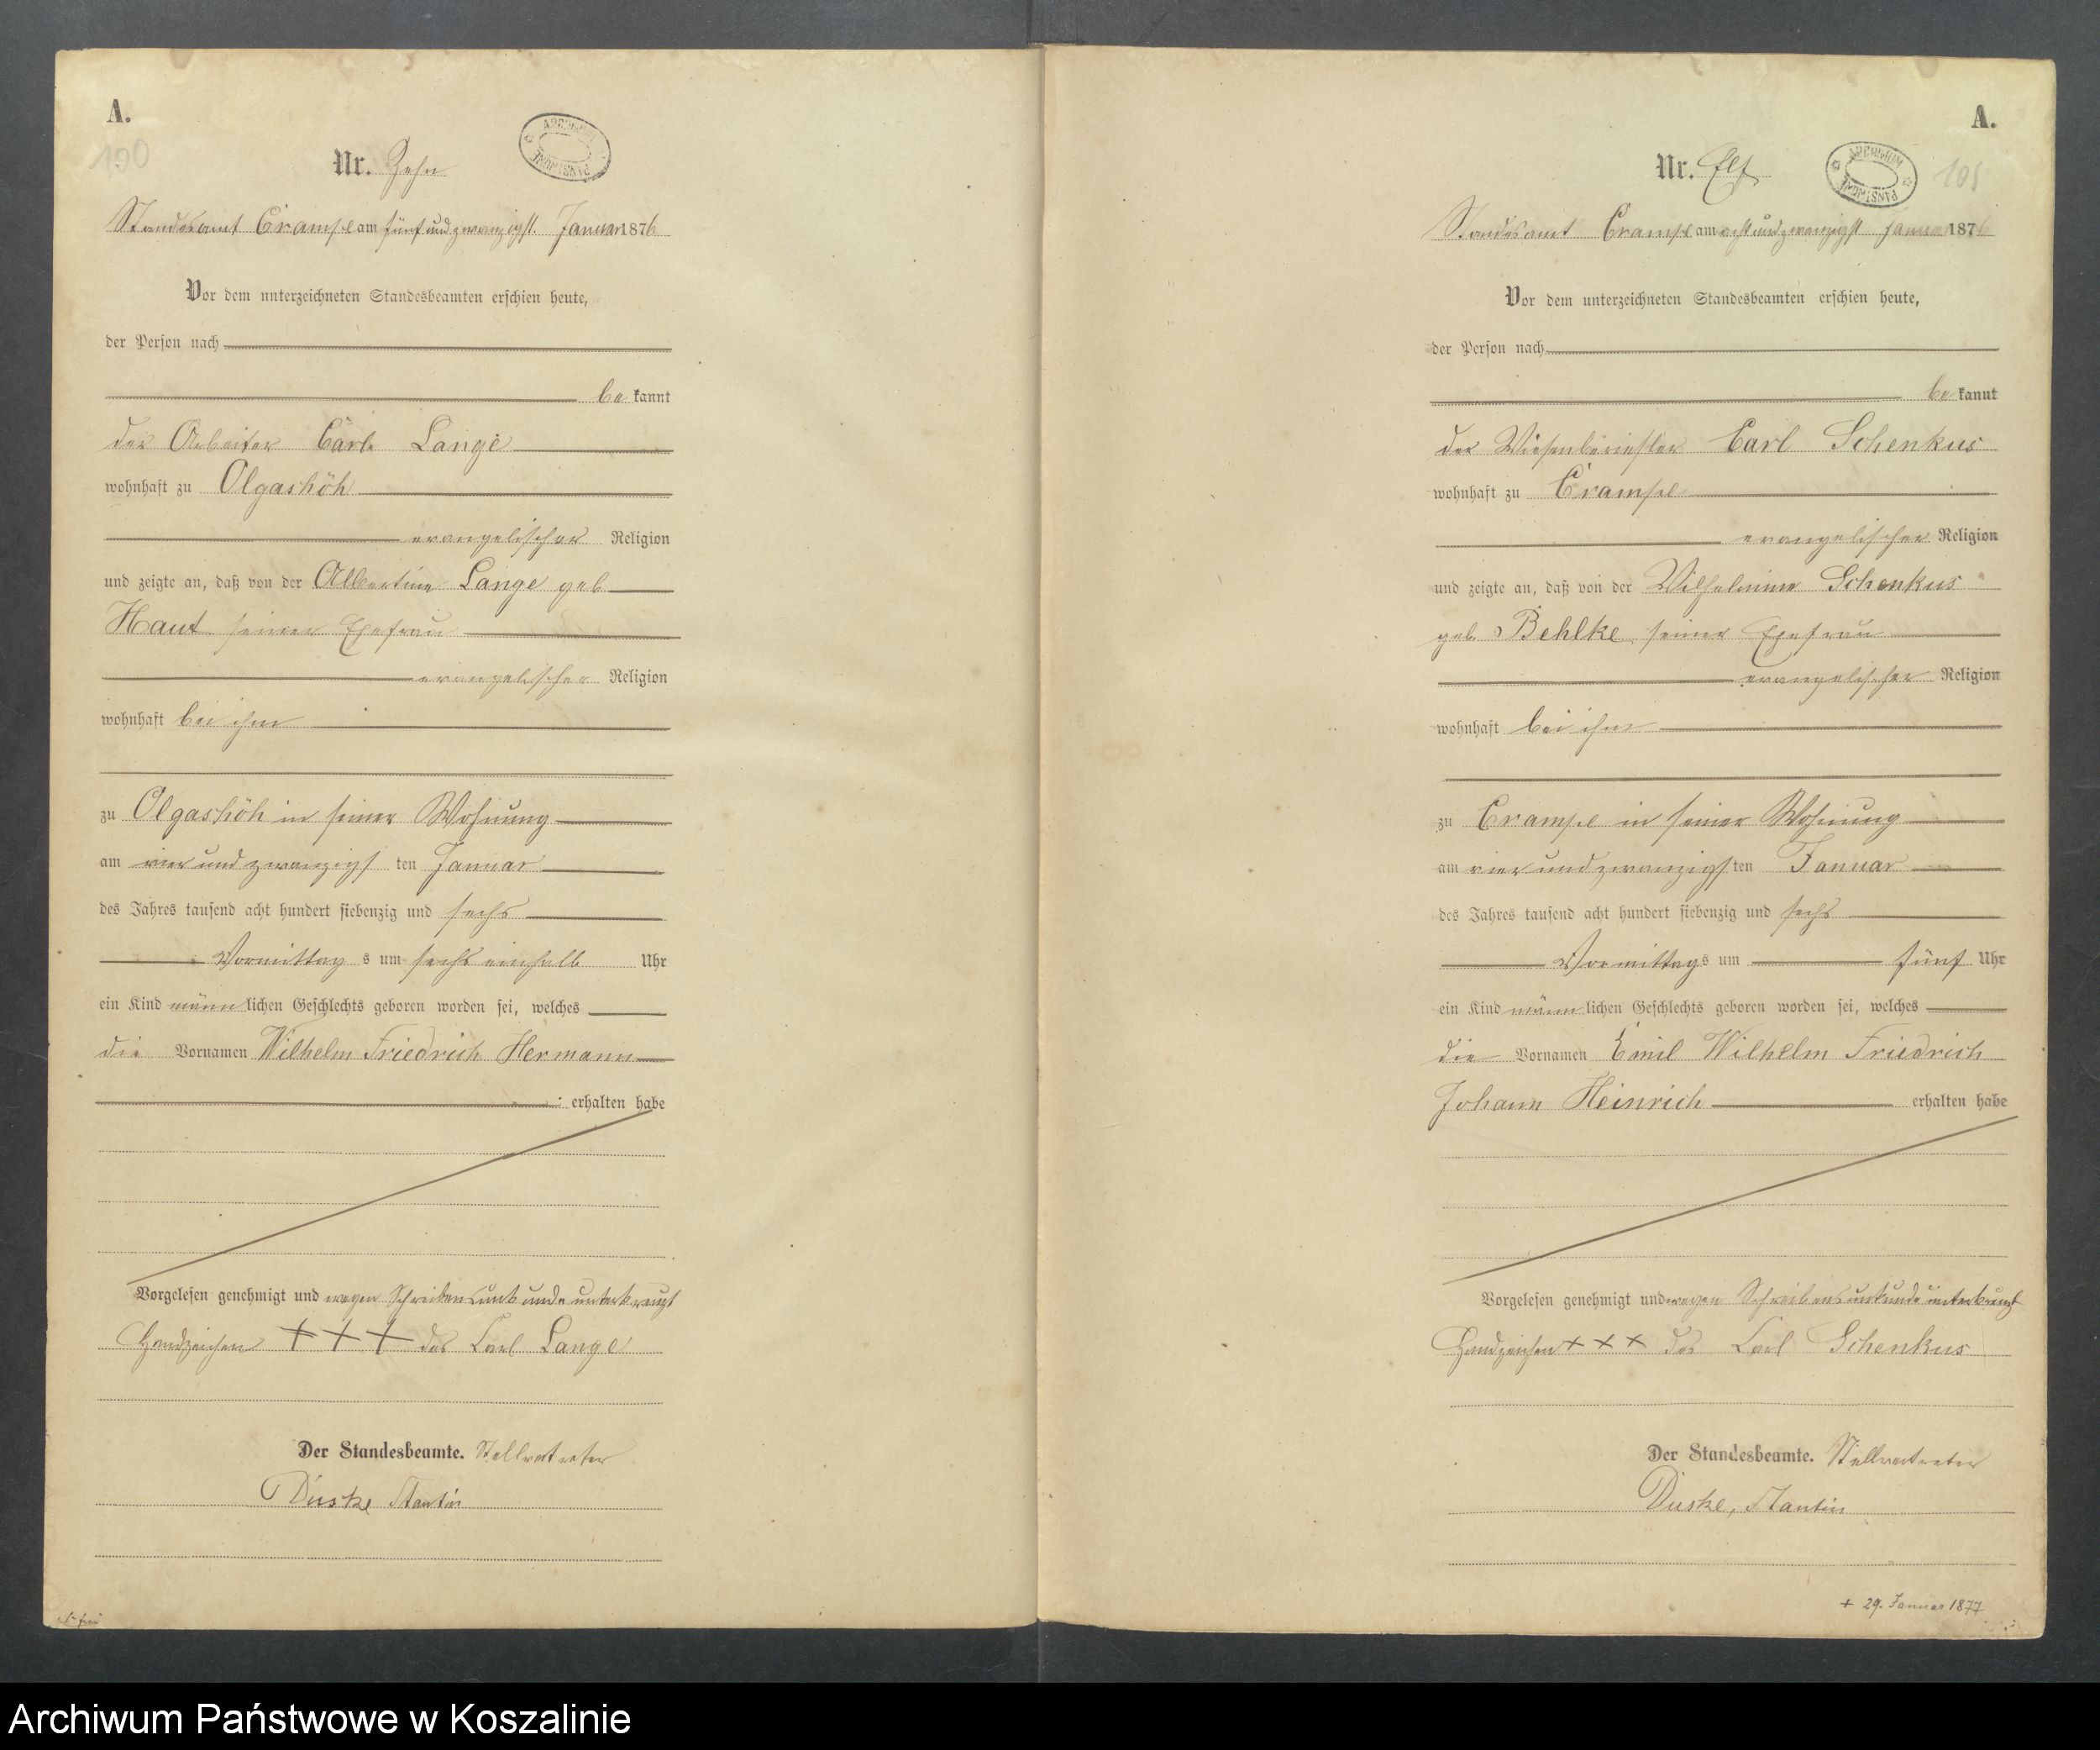 A.
190
Nr. Zehn
ARCHIWUM PAŃSTWOWE
Standesamt Crampe am fünfundzwanzigst. Januar 1876
Vor dem unterzeichneten Standesbeamten erschien heute,
der Person nach
be kannt
der Arbeiter Carl Lange
wohnhaft zu Olgashöh
evangelischer Religion
und zeigte an, daß von der Albertine Lange geb
Haut seiner Ehefrau
evangelischer Religion
wohnhaft bei ihm
zu Olgashöh in seiner Wohnung
am vier und zwanzigs ten Januar
des Jahres tausend acht hundert siebenzig und sechs
Vormittag s um sechs einhalb Uhr
ein Kind männ lichen Geschlechts geboren worden sei, welches
die Vornamen Wilhelm Friedrich Hermann
erhalten habe
Vorgelesen genehmigt und wegen Schreibensunkunde unterkreuzt
Handzeichen + + + des Carl Lange
Der Standesbeamte. Stellvertreter
Duske
A.
Nr. Elf
ARCHIWUM PAŃSTWOWE
101
Standesamt Crampe am achtundzwanzigst Januar 1876
Vor dem unterzeichneten Standesbeamten erschien heute,
der Person nach
be kannt
der Carl Schenkus
wohnhaft zu Crampe
evangelischer Religion
und zeigte an, daß von der Wilhelmine Schenkus
geb. Behlke seiner Ehefrau
evangelischer Religion
wohnhaft bei ihm
zu Crampe in seiner Wohnung
am vier und zwanzigs ten Januar
des Jahres tausend acht hundert siebenzig und sechs
Vormittags um fünf Uhr
ein Kind männ lichen Geschlechts geboren worden sei, welches
die Vornamen Emil Wilhelm Friedrich
Johann Heinrich erhalten habe
Vorgelesen genehmigt und wegen Schreibensunkunde unterkreuzt
Handzeichen + + + des Carl Schenkus
Der Standesbeamte. Stellvertreter
Duske,
+ 29. Januar 1877
Archiwum Państwowe w Koszalinie